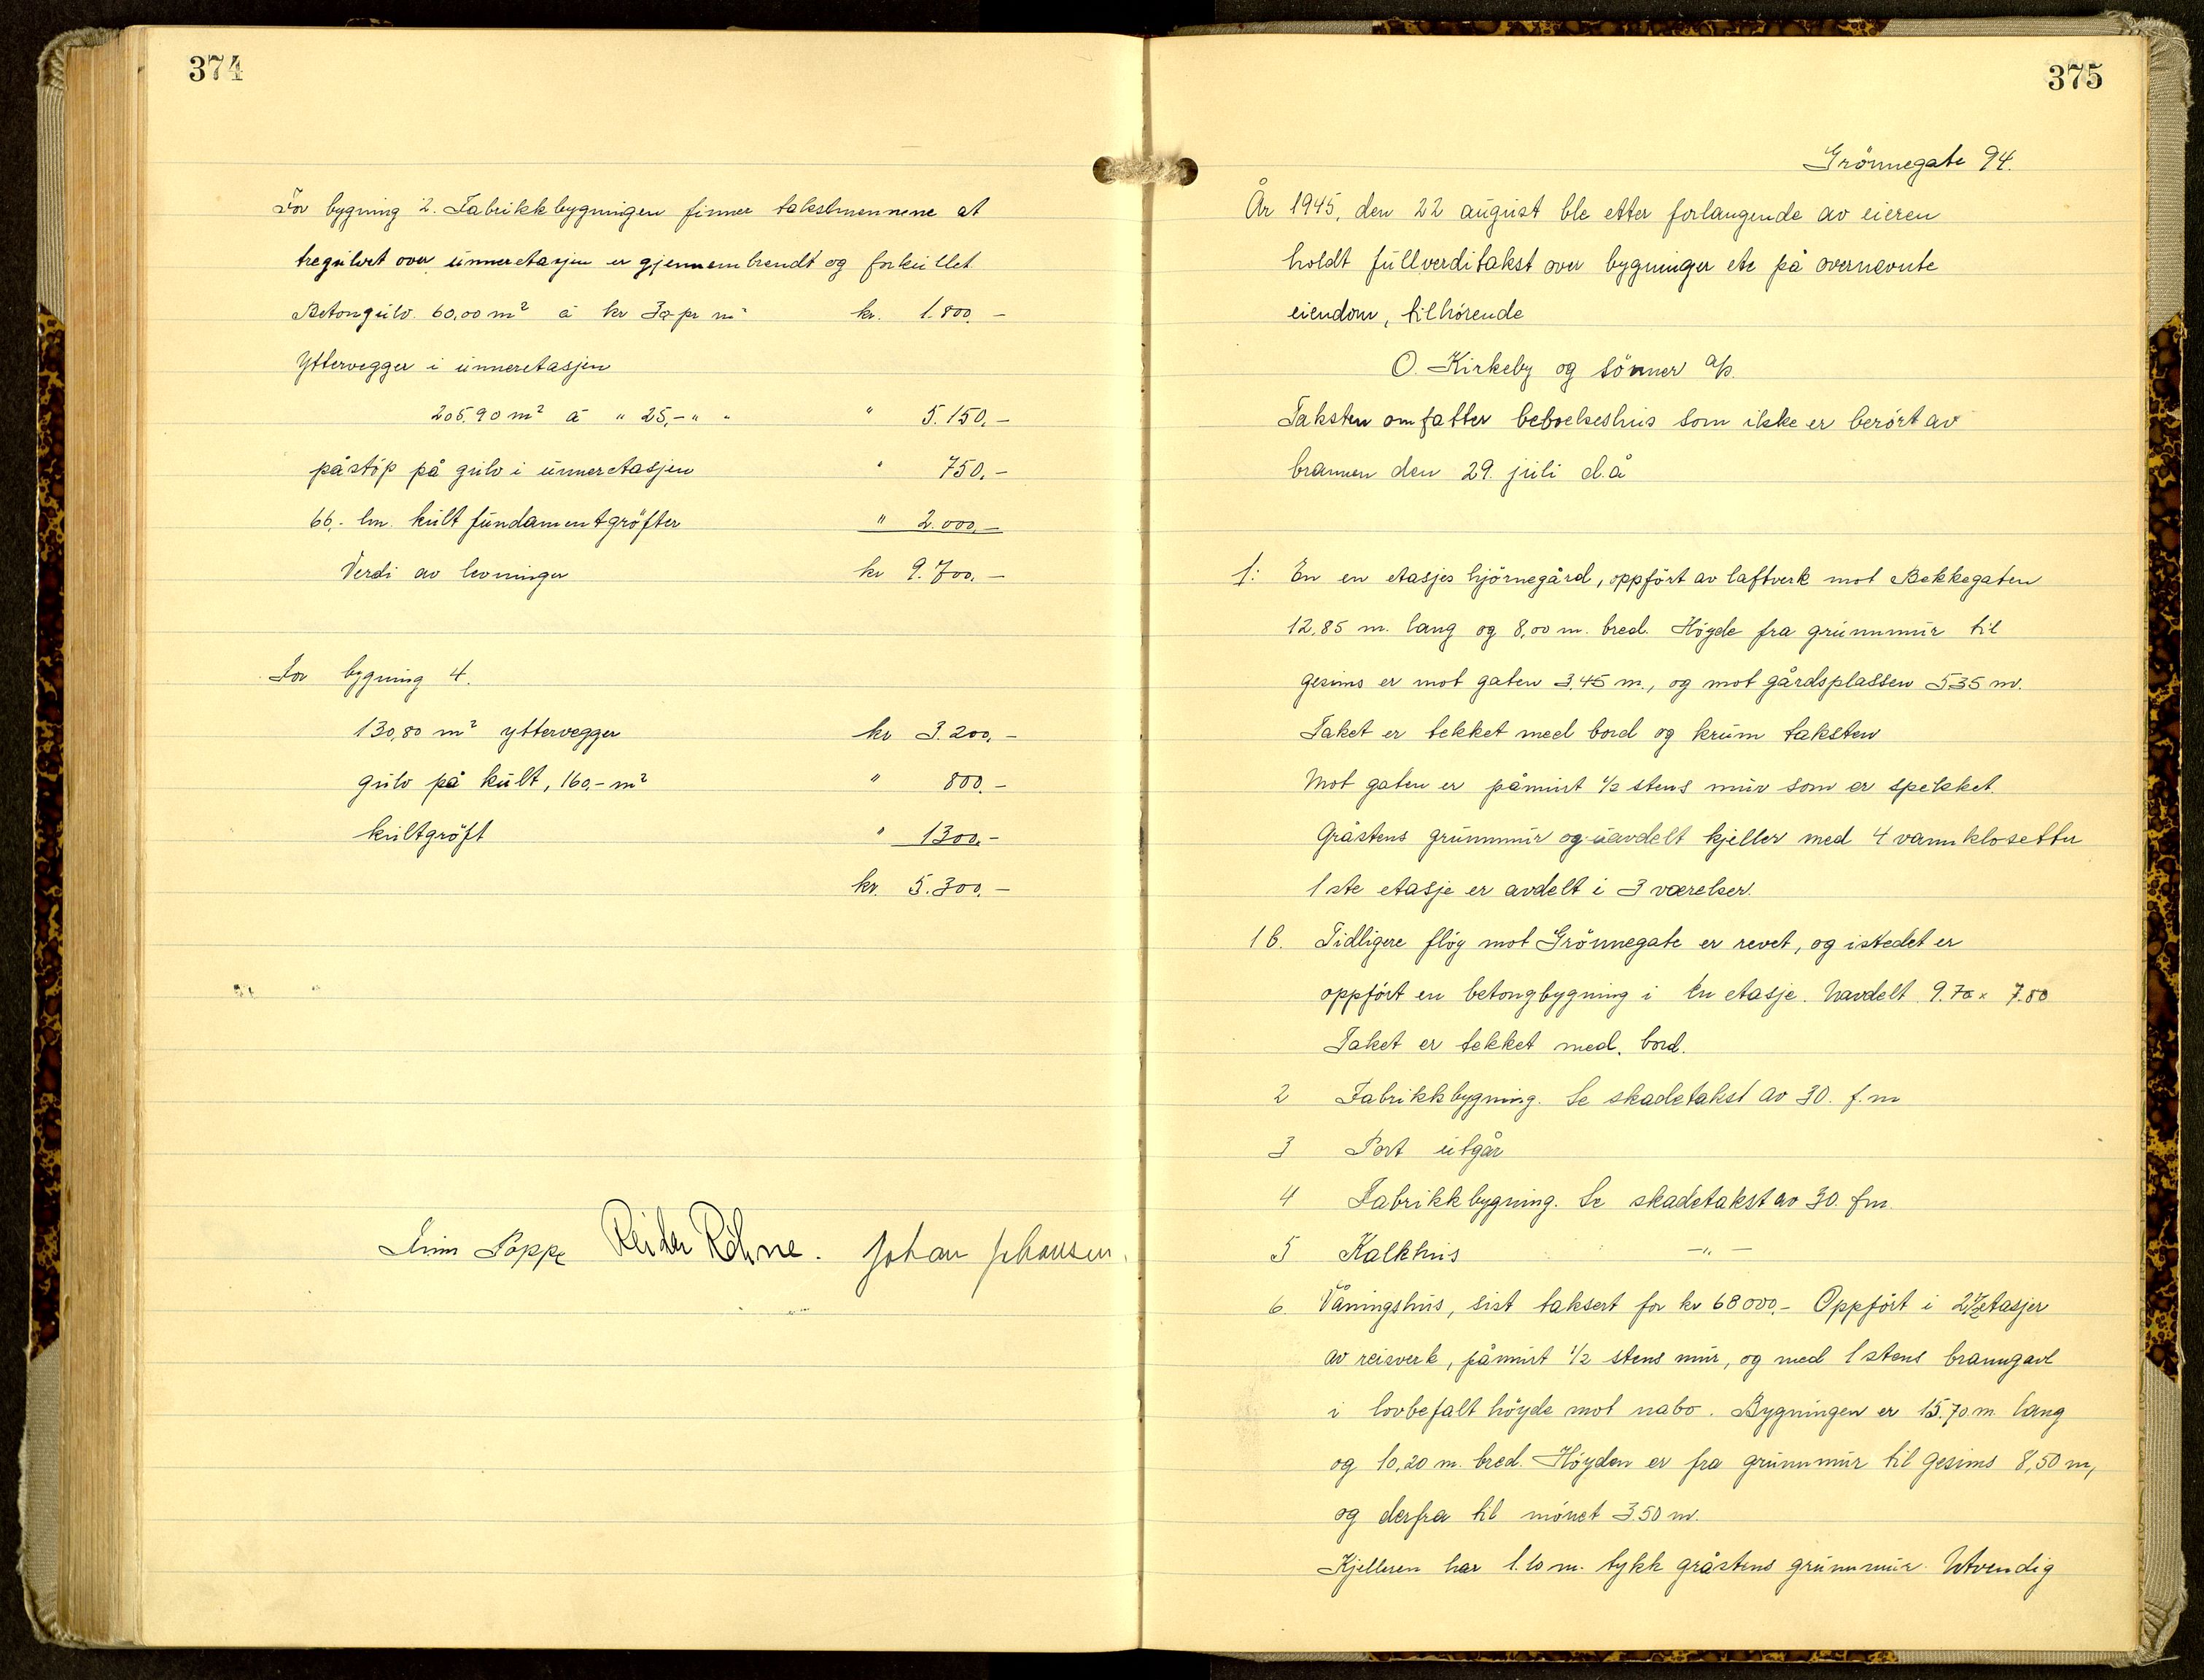 374
For bygning 2. Fabrikkbygningen finner takstmennene at
tregulvet over unneretasjen er gjennembrendt og forkullet
Betongulv. 60,00 m² á kr 30 pr m² kr. 1.800,-
Yttervegger i unneretasjen
205,90 m² á " 25,- " " " 5.150,-
påstöp på gulv i unneretasjen " 750,-
66,- lm. kult fundamentgröfter " 2.000,-
Verdi av levninger kr 9.700,-
For bygning 4.
130,80 m² yttervegger kr 3.200,-
gulv på kult, 160,- m² " 800,-
kultgröft " 1300,-
kr. 5.300,-
Poppe Reidar Röhne. Johan Johansen.
375
Grönnegate 94.
År 1945, den 22 august ble etter forlangende av eieren
holdt fullverditakst over bygninger etc på overnevnte
eiendom, tilhörende
O. Kirkeby og sönner a/s.
Taksten omfatter beboelseshus som ikke er berört av
brannen den 29. juli d.å
1: En en etasjes hjörnegård, oppfört av laftverk mot Bekkegaten
12,85 m. lang og 8,00 m. bred. Höyde fra grunnmur til
gesims er mot gaten 3,45 m., og mot gårdsplassen 5.35 m.
Taket er tekket med bord og krum taksten
Mot gaten er påmurt 1/2 stens mur som er spekket.
Gråstens grunnmur og uavdelt kjeller med 4 vannklosetter
1ste etasje er avdelt i 3 værelser.
1 b. Tidligere flöy mot Grönnegate er revet, og istedet er
oppfört en betongbygning i en etasje. Uavdelt 9.70 x 7.80
Taket er tekket med. bord.
2 Fabrikkbygning. Se skadetakst av 30. f.m
3 Port utgår
4 Fabrikkbygning. Se skadetakst av 30. fm.
5 Kalkhus —"—
6. Våningshus, sist taksert for kr 68000,- Oppfört i 2 1/2 etasjer
av reisverk, påmurt 1/2 stens mur, og med 1 stens branngavl
i lovbefalt höyde mot nabo. Bygningen er 15.70 m. lang
og 10,20 m. bred. Höyden er fra grunnmur til gesims 8,50 m,
og derfra til mönet 3.50 m.
Kjelleren har 1.10 m. tykk gråstens grunnmur. Utvendig